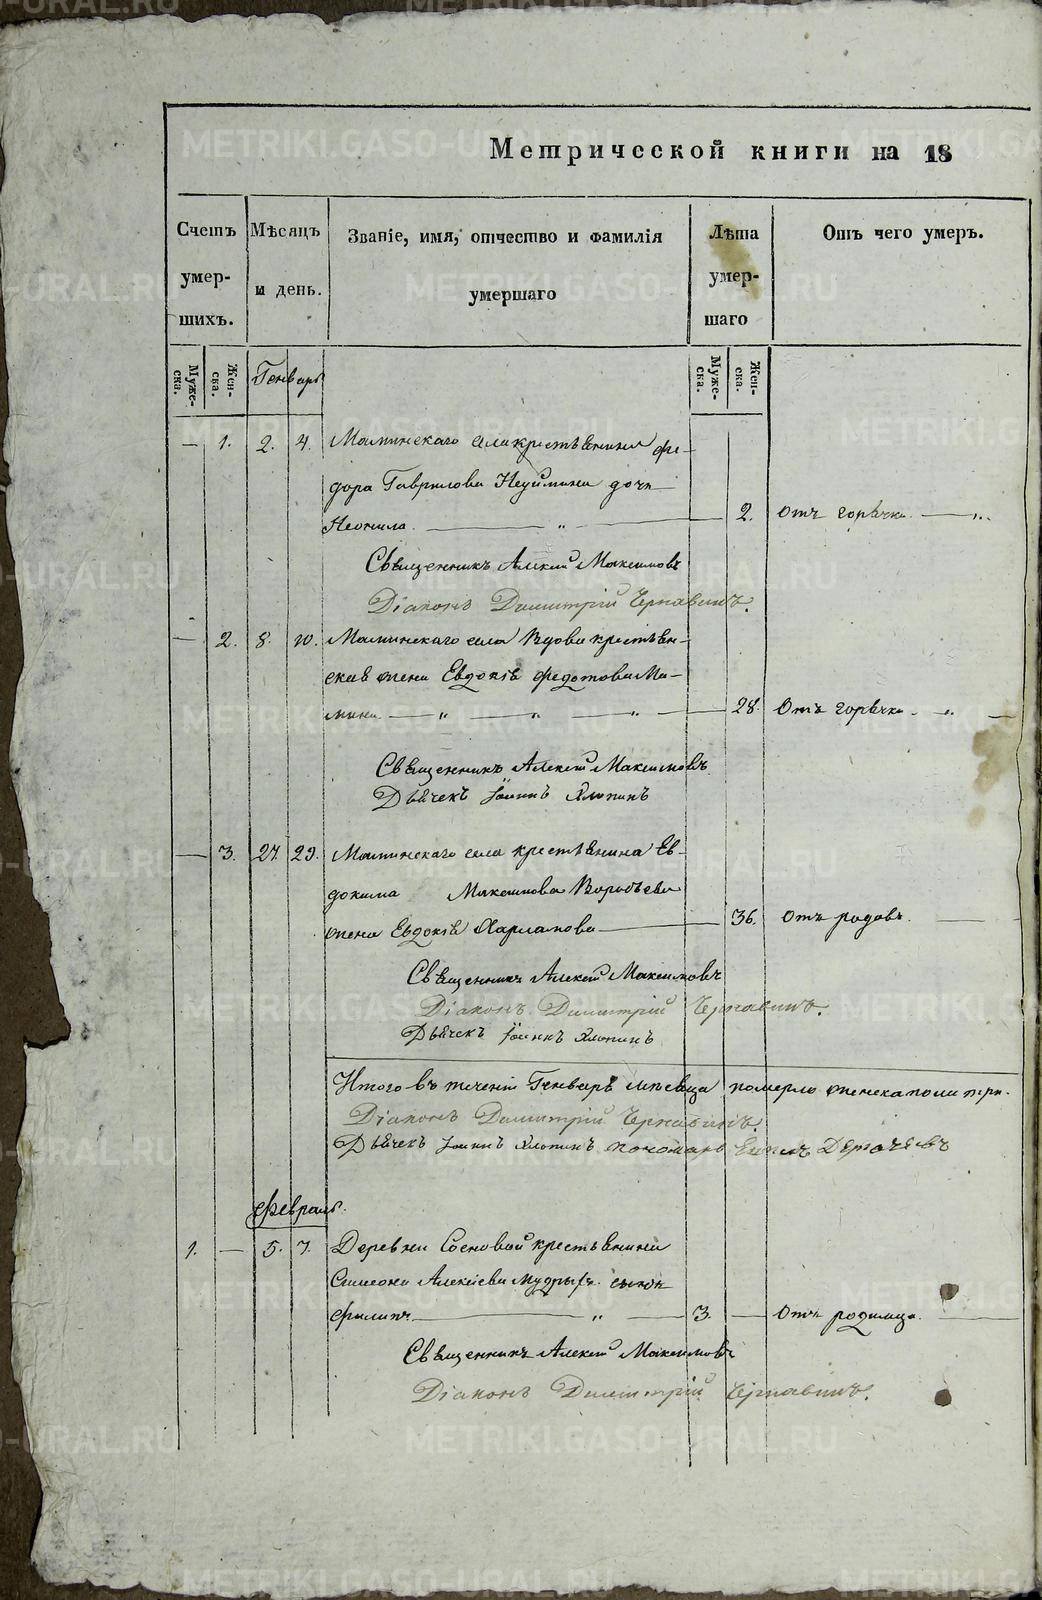 Метрической книги на 18
Счетъ умер- шихъ.
Мѣсяцъ и день.
Званіе, имя, отчество и фамилія умершаго
Лѣта умер- шаго
Отъ чего умеръ.
Муже- ска.
Жен- ска.
Генварь
Муже- ска.
Жен- ска.
— 1. 2. 4. Маминскаго села крестьянина Фе-
дора Гаврилова Неуймина дочь
Неонила. — „ — 2. Отъ горячки. — „
Священникъ Алексий Максимовъ
Діаконъ Димитрій Чернавинъ.
— 2. 8. 10. Маминскаго села Вдова крестьян-
ская жена Евдокія Федотова Ма-
мина — „ — „ — „ — 28. Отъ горячки. „ —
Священникъ Алексий Максимовъ
Дьячекъ Іоаннъ Хлопинъ
— 3. 27. 29. Маминскаго села крестьянина Ев-
докима Максимова Воробьева
жена Евдокія Харлапова — 36. Отъ родовъ. —
Священникъ Алексий Максимовъ
Діаконъ Димитрій Чернавинъ.
Дьячекъ Іоаннъ Хлопинъ
Итого въ теченіи Генваря мѣсяца померло женска пола три.
Діаконъ Димитрій Чернавинъ.
Дьячекъ Іоаннъ Хлопинъ пономарь Дергачевъ
Февраль.
1. — 5. 7. Деревни Сосновой крестьянина
Симеона Алексѣева Мудрыхъ сынъ
Филипъ — „ — 3. — Отъ родимца. —
Священникъ Алексий Максимовъ
Діаконъ Димитрій Чернавинъ.
METRIKI.GASO-URAL.RU